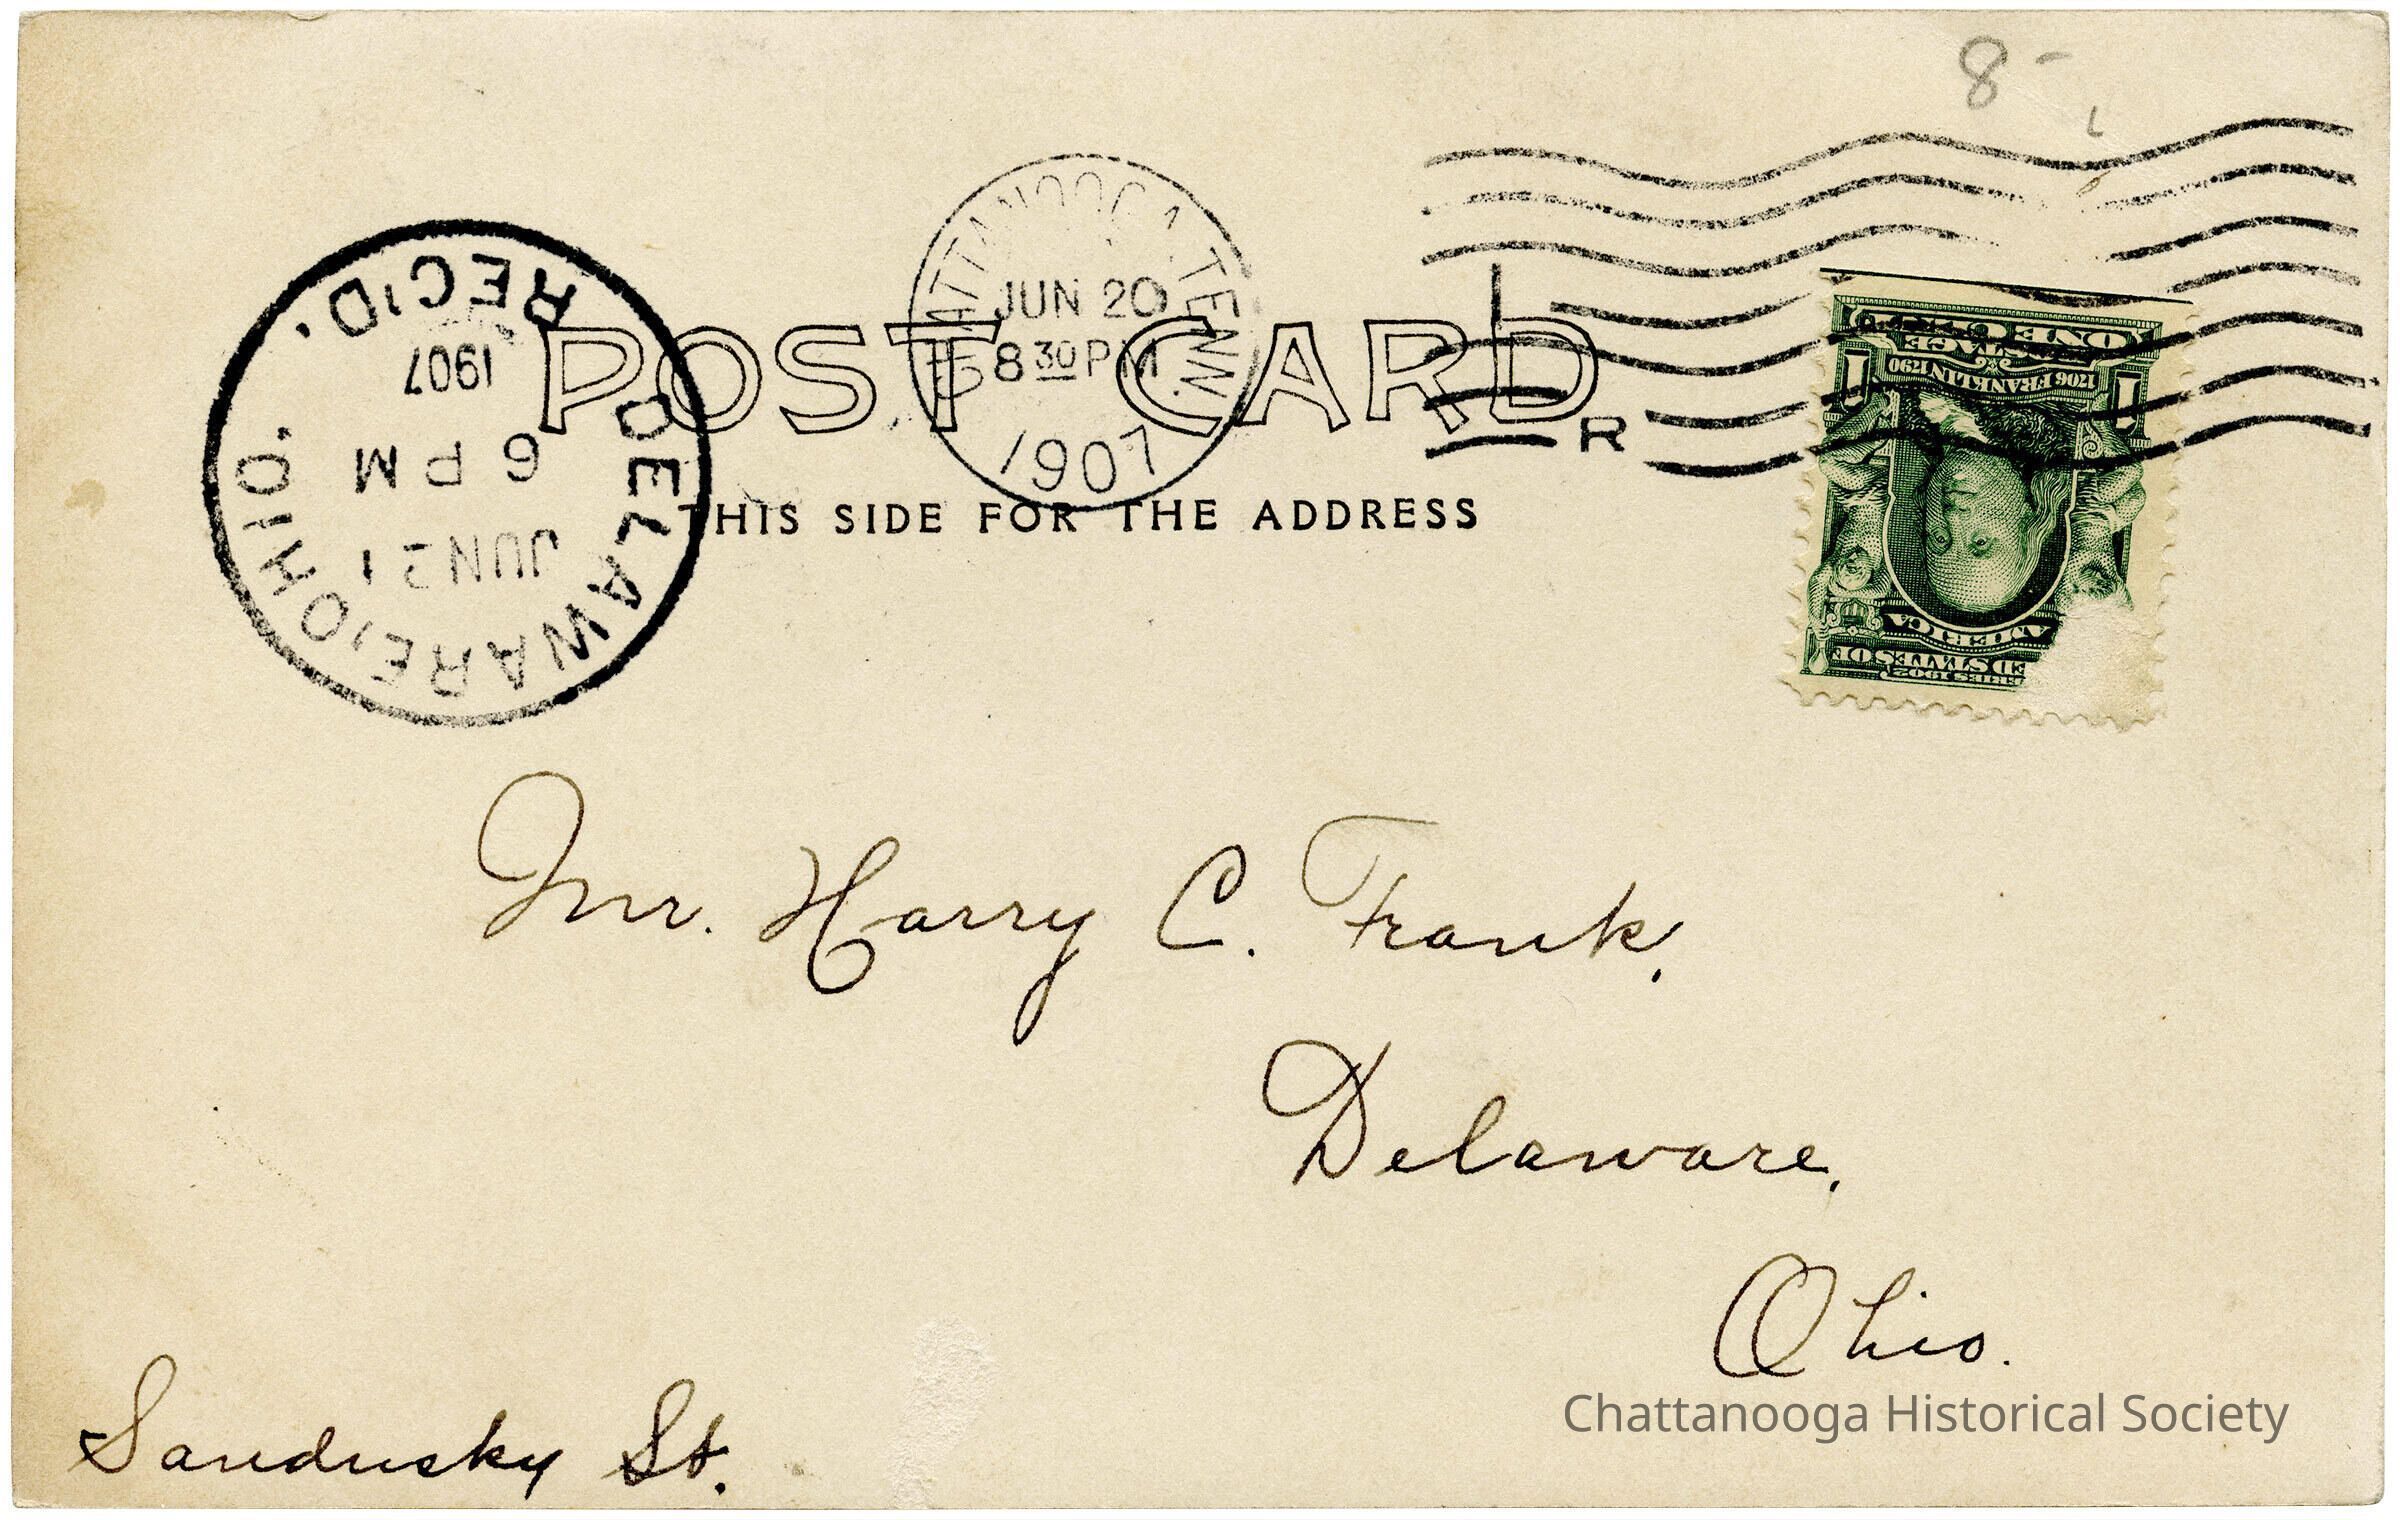 8-
CHATTANOOGA, TENN.
JUN 20
8 30 PM
1907
REC'D.
1907
6 PM
JUN 21
DELAWARE, OHIO.
POST CARD
R
THIS SIDE FOR THE ADDRESS
ONE CENT
POSTAGE
1706 FRANKLIN 1790
1 1
AMERICA
ED STATES OF
SERIES 1902
Mr. Harry C. Frank,
Delaware,
Ohio.
Sandusky St.
Chattanooga Historical Society